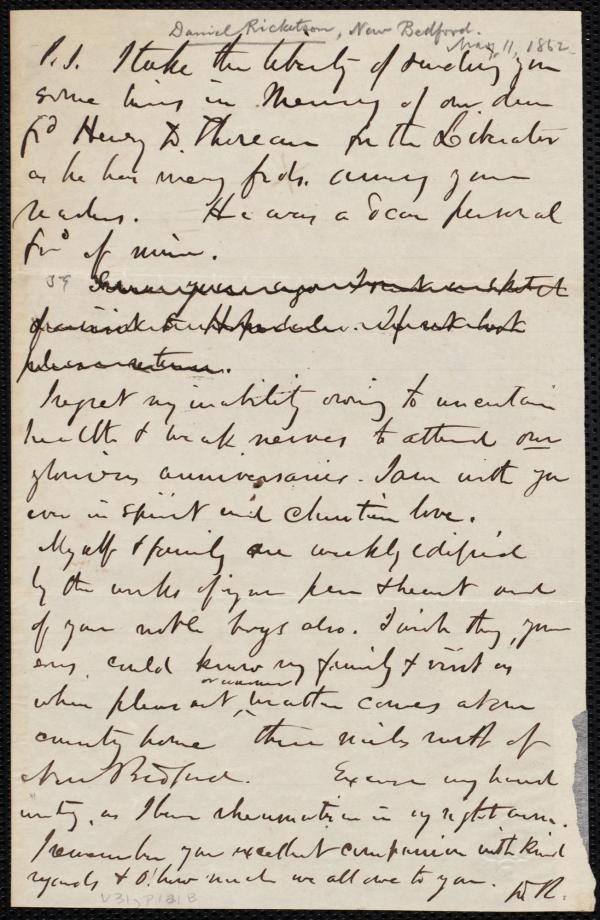 Daniel Ricketson, New Bedford.
May 11, 1862.
P.S. I take the liberty of sending you
some lines in Memory of our dear
frd Henry D. Thoreau for the Liberator
as he has many frds. among your
readers. He was a dear personal
frd of mine.
years ago I sent a sketch
of Hopedale. If not took
please return.
I regret my inability owing to uncertain
health & weak nerves to attend our
glorious anniversaries. I am with you
ever in spirit and christian love.
Myself & family are weekly edified
by the works of your pen & heart and
of your noble boys also. I wish they, your
sons, could know my family & visit us
or warmer
when pleasant, weather comes at our
country home three miles north of
New Bedford. Excuse my hand
writing, as I have rheumatism in my right arm.
I remember your excellent companion with kind
regards & O! how much we all owe to you. D. R.